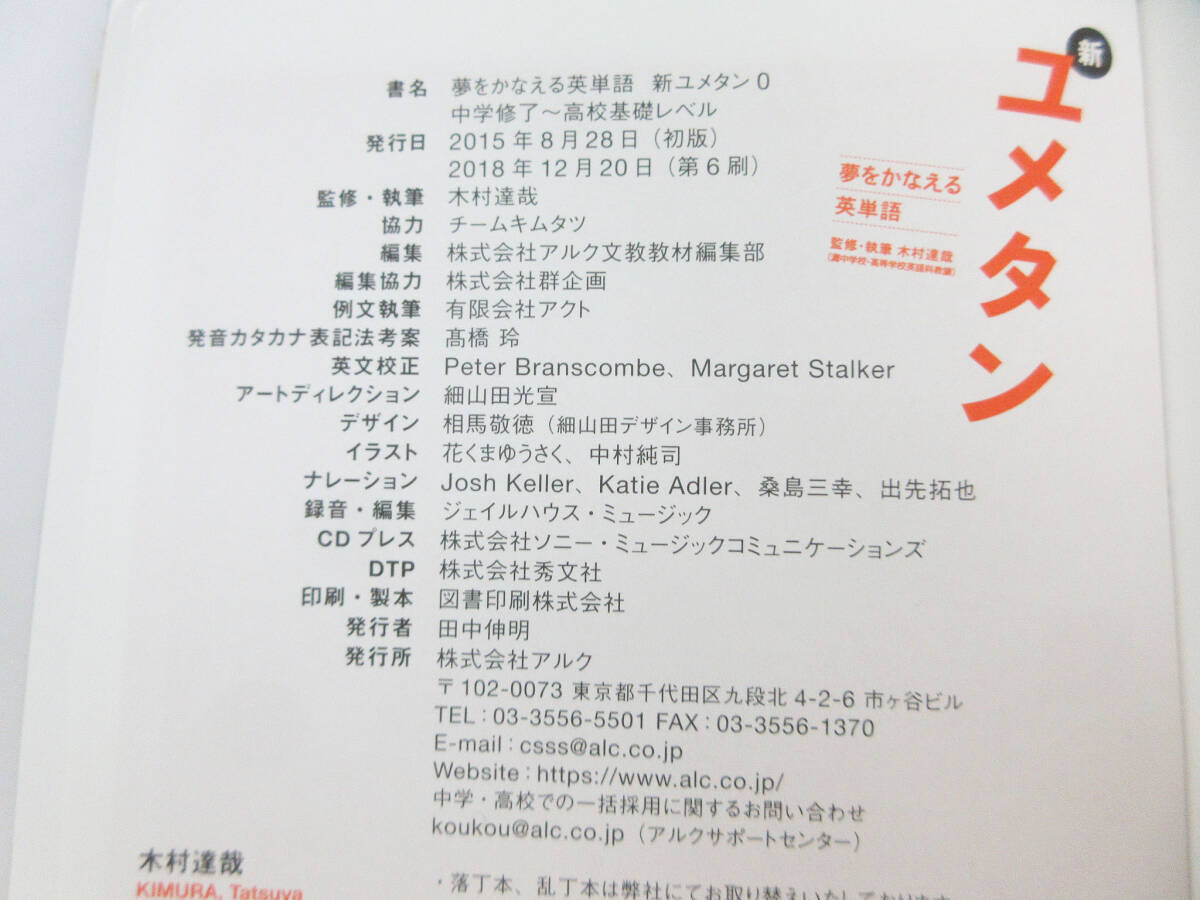 書名 夢をかなえる英単語 新ユメタン0
中学修了～高校基礎レベル
発行日 2015年8月28日（初版）
2018年12月20日（第6刷）
監修・執筆 木村達哉
協力 チームキムタツ
編集 株式会社アルク文教教材編集部
編集協力 株式会社群企画
例文執筆 有限会社アクト
発音カタカナ表記法考案 髙橋 玲
英文校正 Peter Branscombe、Margaret Stalker
アートディレクション 細山田光宣
デザイン 相馬敬徳（細山田デザイン事務所）
イラスト 花くまゆうさく、中村純司
ナレーション Josh Keller、Katie Adler、桑島三幸、出先拓也
録音・編集 ジェイルハウス・ミュージック
CDプレス 株式会社ソニー・ミュージックコミュニケーションズ
DTP 株式会社秀文社
印刷・製本 図書印刷株式会社
発行者 田中伸明
発行所 株式会社アルク
〒102-0073 東京都千代田区九段北4-2-6 市ヶ谷ビル
TEL：03-3556-5501 FAX：03-3556-1370
E-mail：csss@alc.co.jp
Website：https://www.alc.co.jp/
中学・高校での一括採用に関するお問い合わせ
koukou@alc.co.jp（アルクサポートセンター）
新
ユメタン
夢をかなえる
英単語
監修・執筆 木村達哉
（灘中学校・高等学校英語科教諭）
木村達哉
KIMURA, Tatsuya
・落丁本、乱丁本は弊社にてお取り替えいたしております